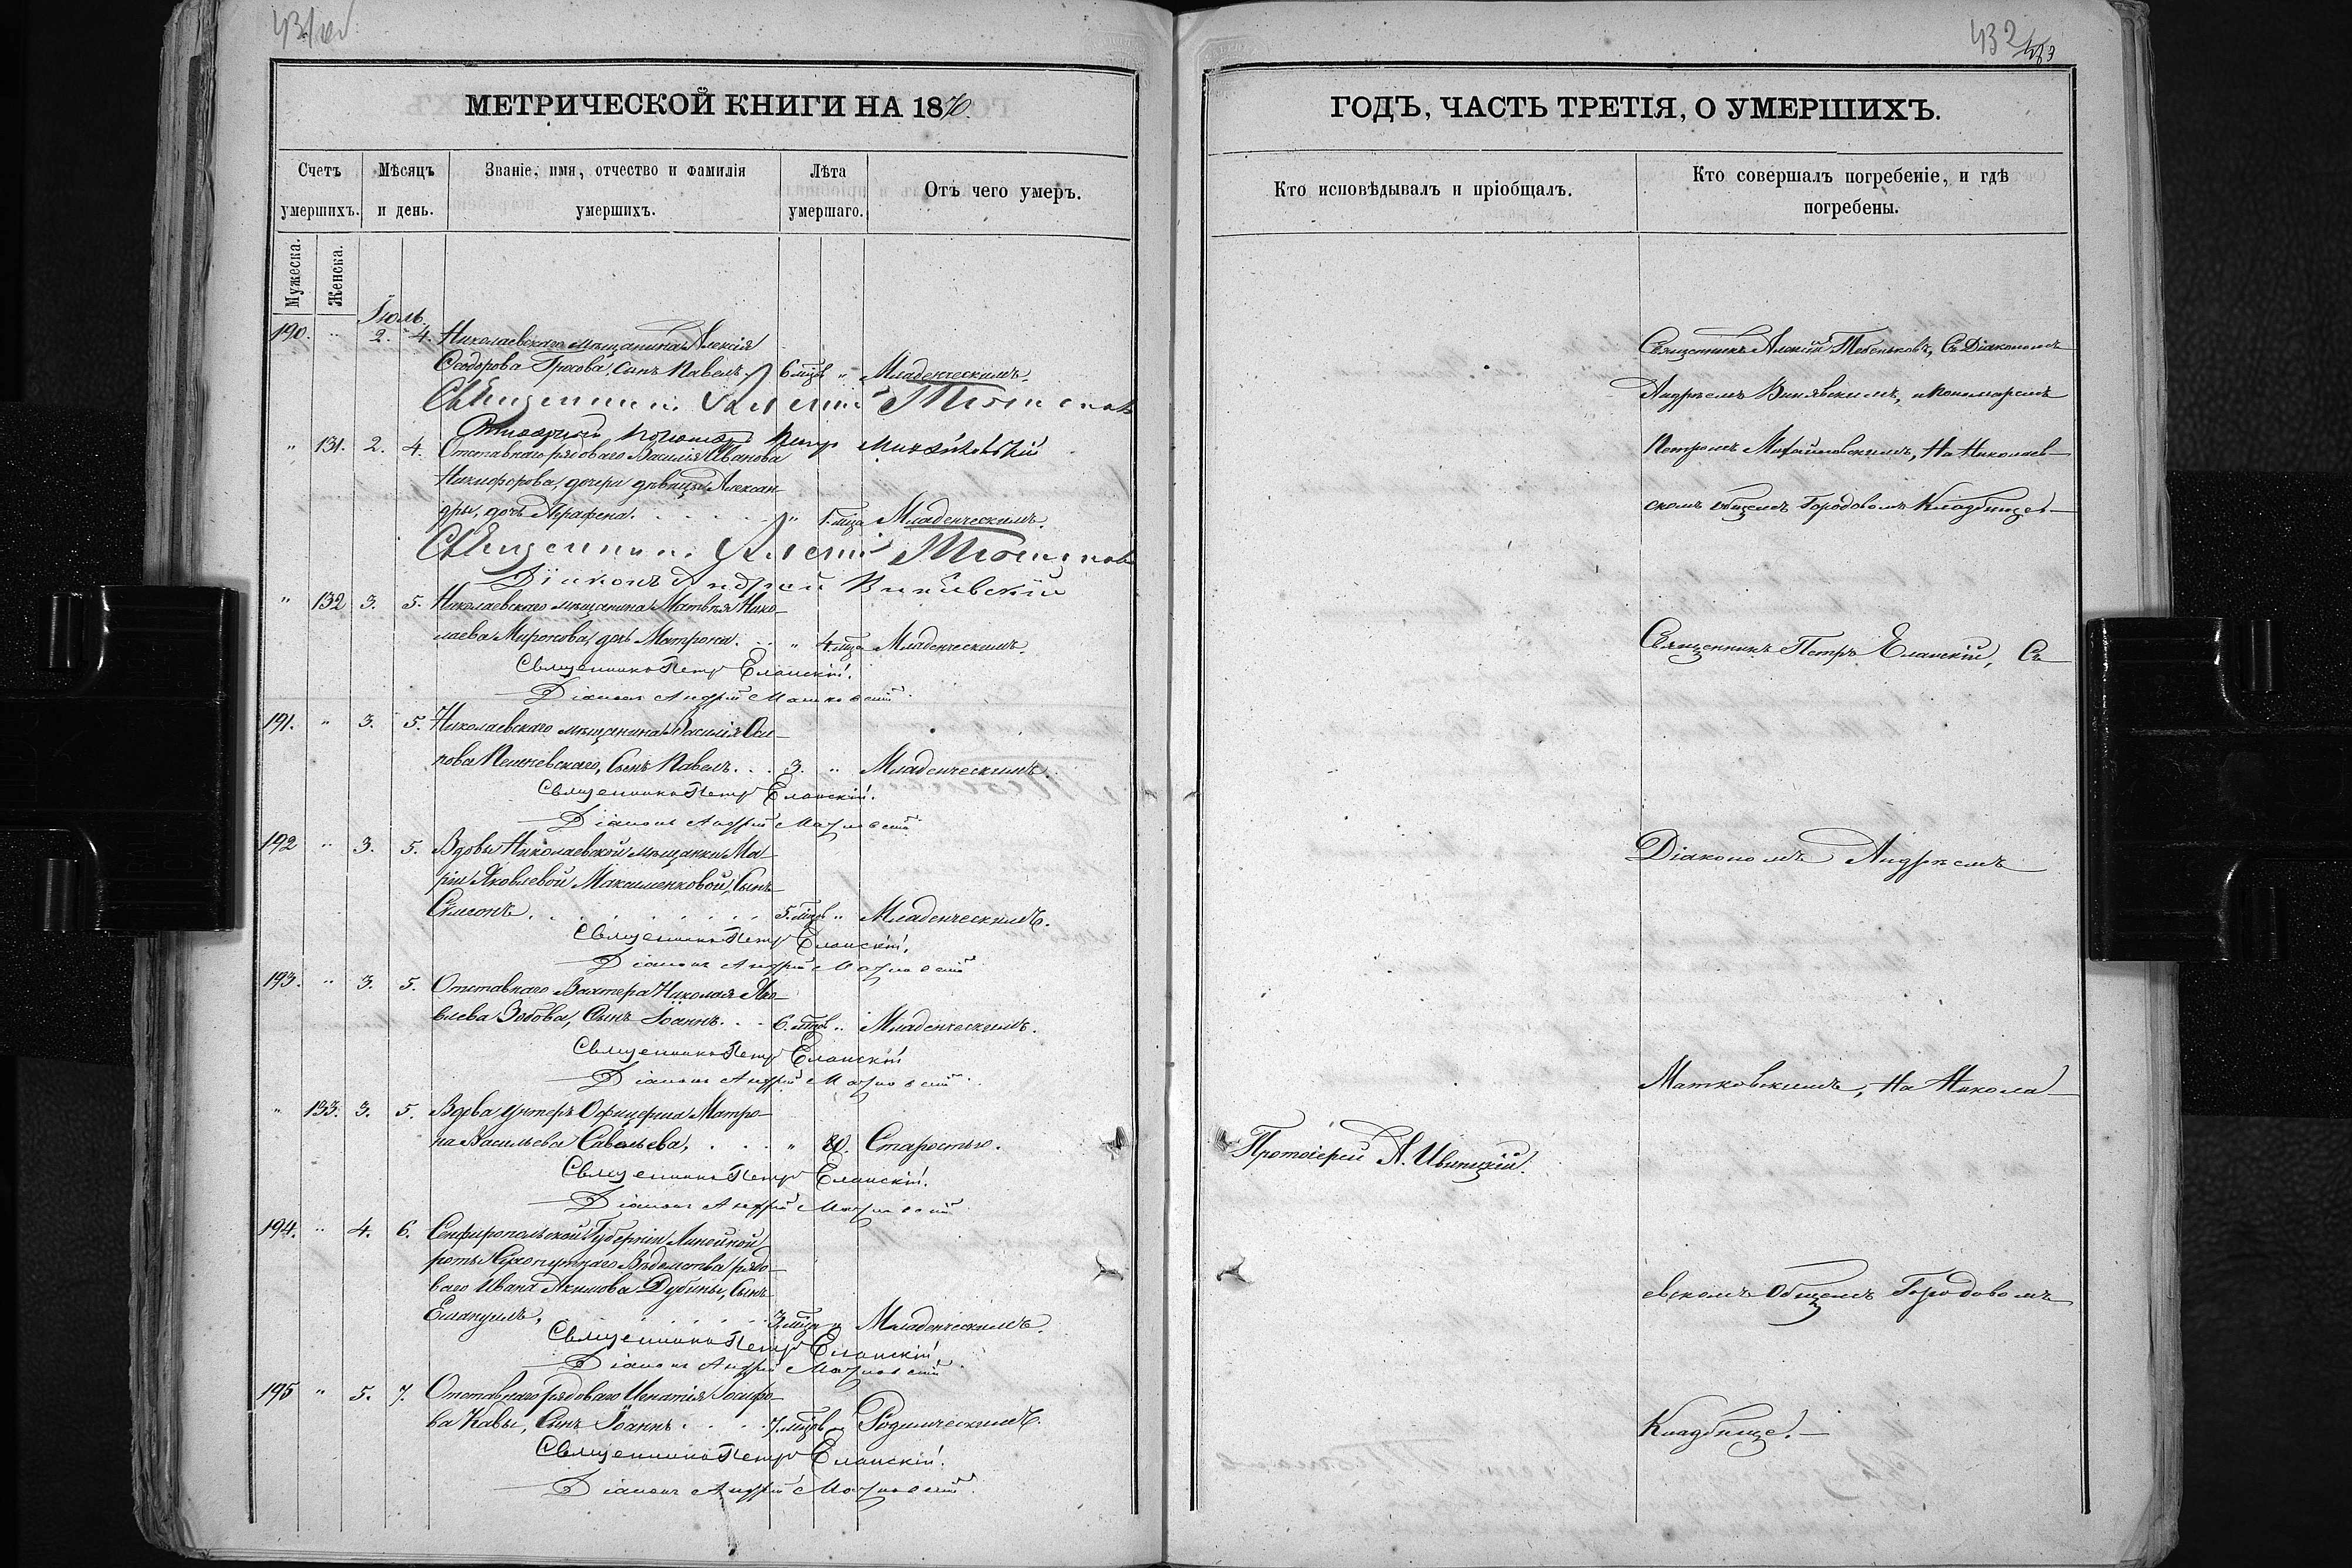 МЕТРИЧЕСКОЙ КНИГИ НА 1870.
Счетъ умершихъ.
Мѣсяцъ и день.
Званіе, имя, отчество и фамилія умершихъ.
Лѣта умершаго.
Отъ чего умеръ.
Мужеска.
Женска.
Іюль
190. " 2. 4. Николаевскаго мѣщанина Алексія
Ѳеодорова Грохова, Сынъ Павелъ. 6 мцвъ " Младенческимъ.
Священникъ Алексій
" 131. 2. 4. Отставнаго рядоваго Василія Иванова
Никифорова, дочери дѣвицы Алексан-
дры, дочь Аграфена. " 1. мца Младенческимъ.
Священникъ Алексій
Діаконъ Андрей Винявскій
" 132 3. 5. Николаевскаго мѣщанина Матвѣя Нико-
лаева Миронова, дочь Матрона. " 4. мца Младенческимъ
Священникъ Петръ Еланскій.
Діаконъ Андрей Матковскій
191. " 3. 5. Николаевскаго мѣщанина Василія Оси-
пова Сынъ Павелъ. 3. " Младенческимъ.
Священникъ Петръ Еланскій.
Діаконъ Андрей Матковскій
192 " 3. 5. Вдовы Николаевской мѣщанки Ма-
ріи Яковлевой Максименковой, Сынъ
Сѵмеонъ, 5. мцвъ " Младенческимъ.
Священникъ Петръ Еланскій.
Діаконъ Андрей Матковскій
193. " 3. 5. Отставнаго Вахтера Николая Яко-
влева Зобова, Сынъ Іоаннъ. 6. мцвъ " Младенческимъ.
Священникъ Петръ Еланскій
Діаконъ Андрей Матковскій
" 133. 3. 5. Вдова Унтеръ Офицерша Матро-
на Васильева Савельева, " 80. Старостью.
Священникъ Петръ Еланскій.
Діаконъ Андрей Матковскій
194. " 4. 6. Симферопольской Губерніи Линейной
роты Сухопутнаго Вѣдомства рядо-
ваго Ивана Акимова Дубины, Сынъ
Емануилъ, 3. мца " Младенческимъ.
Священникъ Петръ Еланскій
Діаконъ Андрей Матковскій
195 " 5. 7. Отставнаго рядоваго Игнатія Іосифо-
ва Кавы, Сынъ Іоаннъ. 7. мцвъ " Родимческимъ.
Священникъ Петръ Еланскій.
Діаконъ Андрей Матковскій
432
ГОДЪ, ЧАСТЬ ТРЕТІЯ, О УМЕРШИХЪ.
Кто исповѣдывалъ и пріобщалъ.
Кто совершалъ погребеніе, и гдѣ погребены.
Священникъ Алексій Съ Діакономъ
Андреемъ Винявскимъ, и Пономаремъ
Петромъ Михайловскимъ, На Николаев-
скомъ общемъ Городовомъ Кладбищѣ-
Священникъ Петръ Еланскій, Съ
Діакономъ Андреемъ
Матковскимъ, На Никола-
Протоіерей
евскомъ Общемъ Городовомъ
Кладбище.-